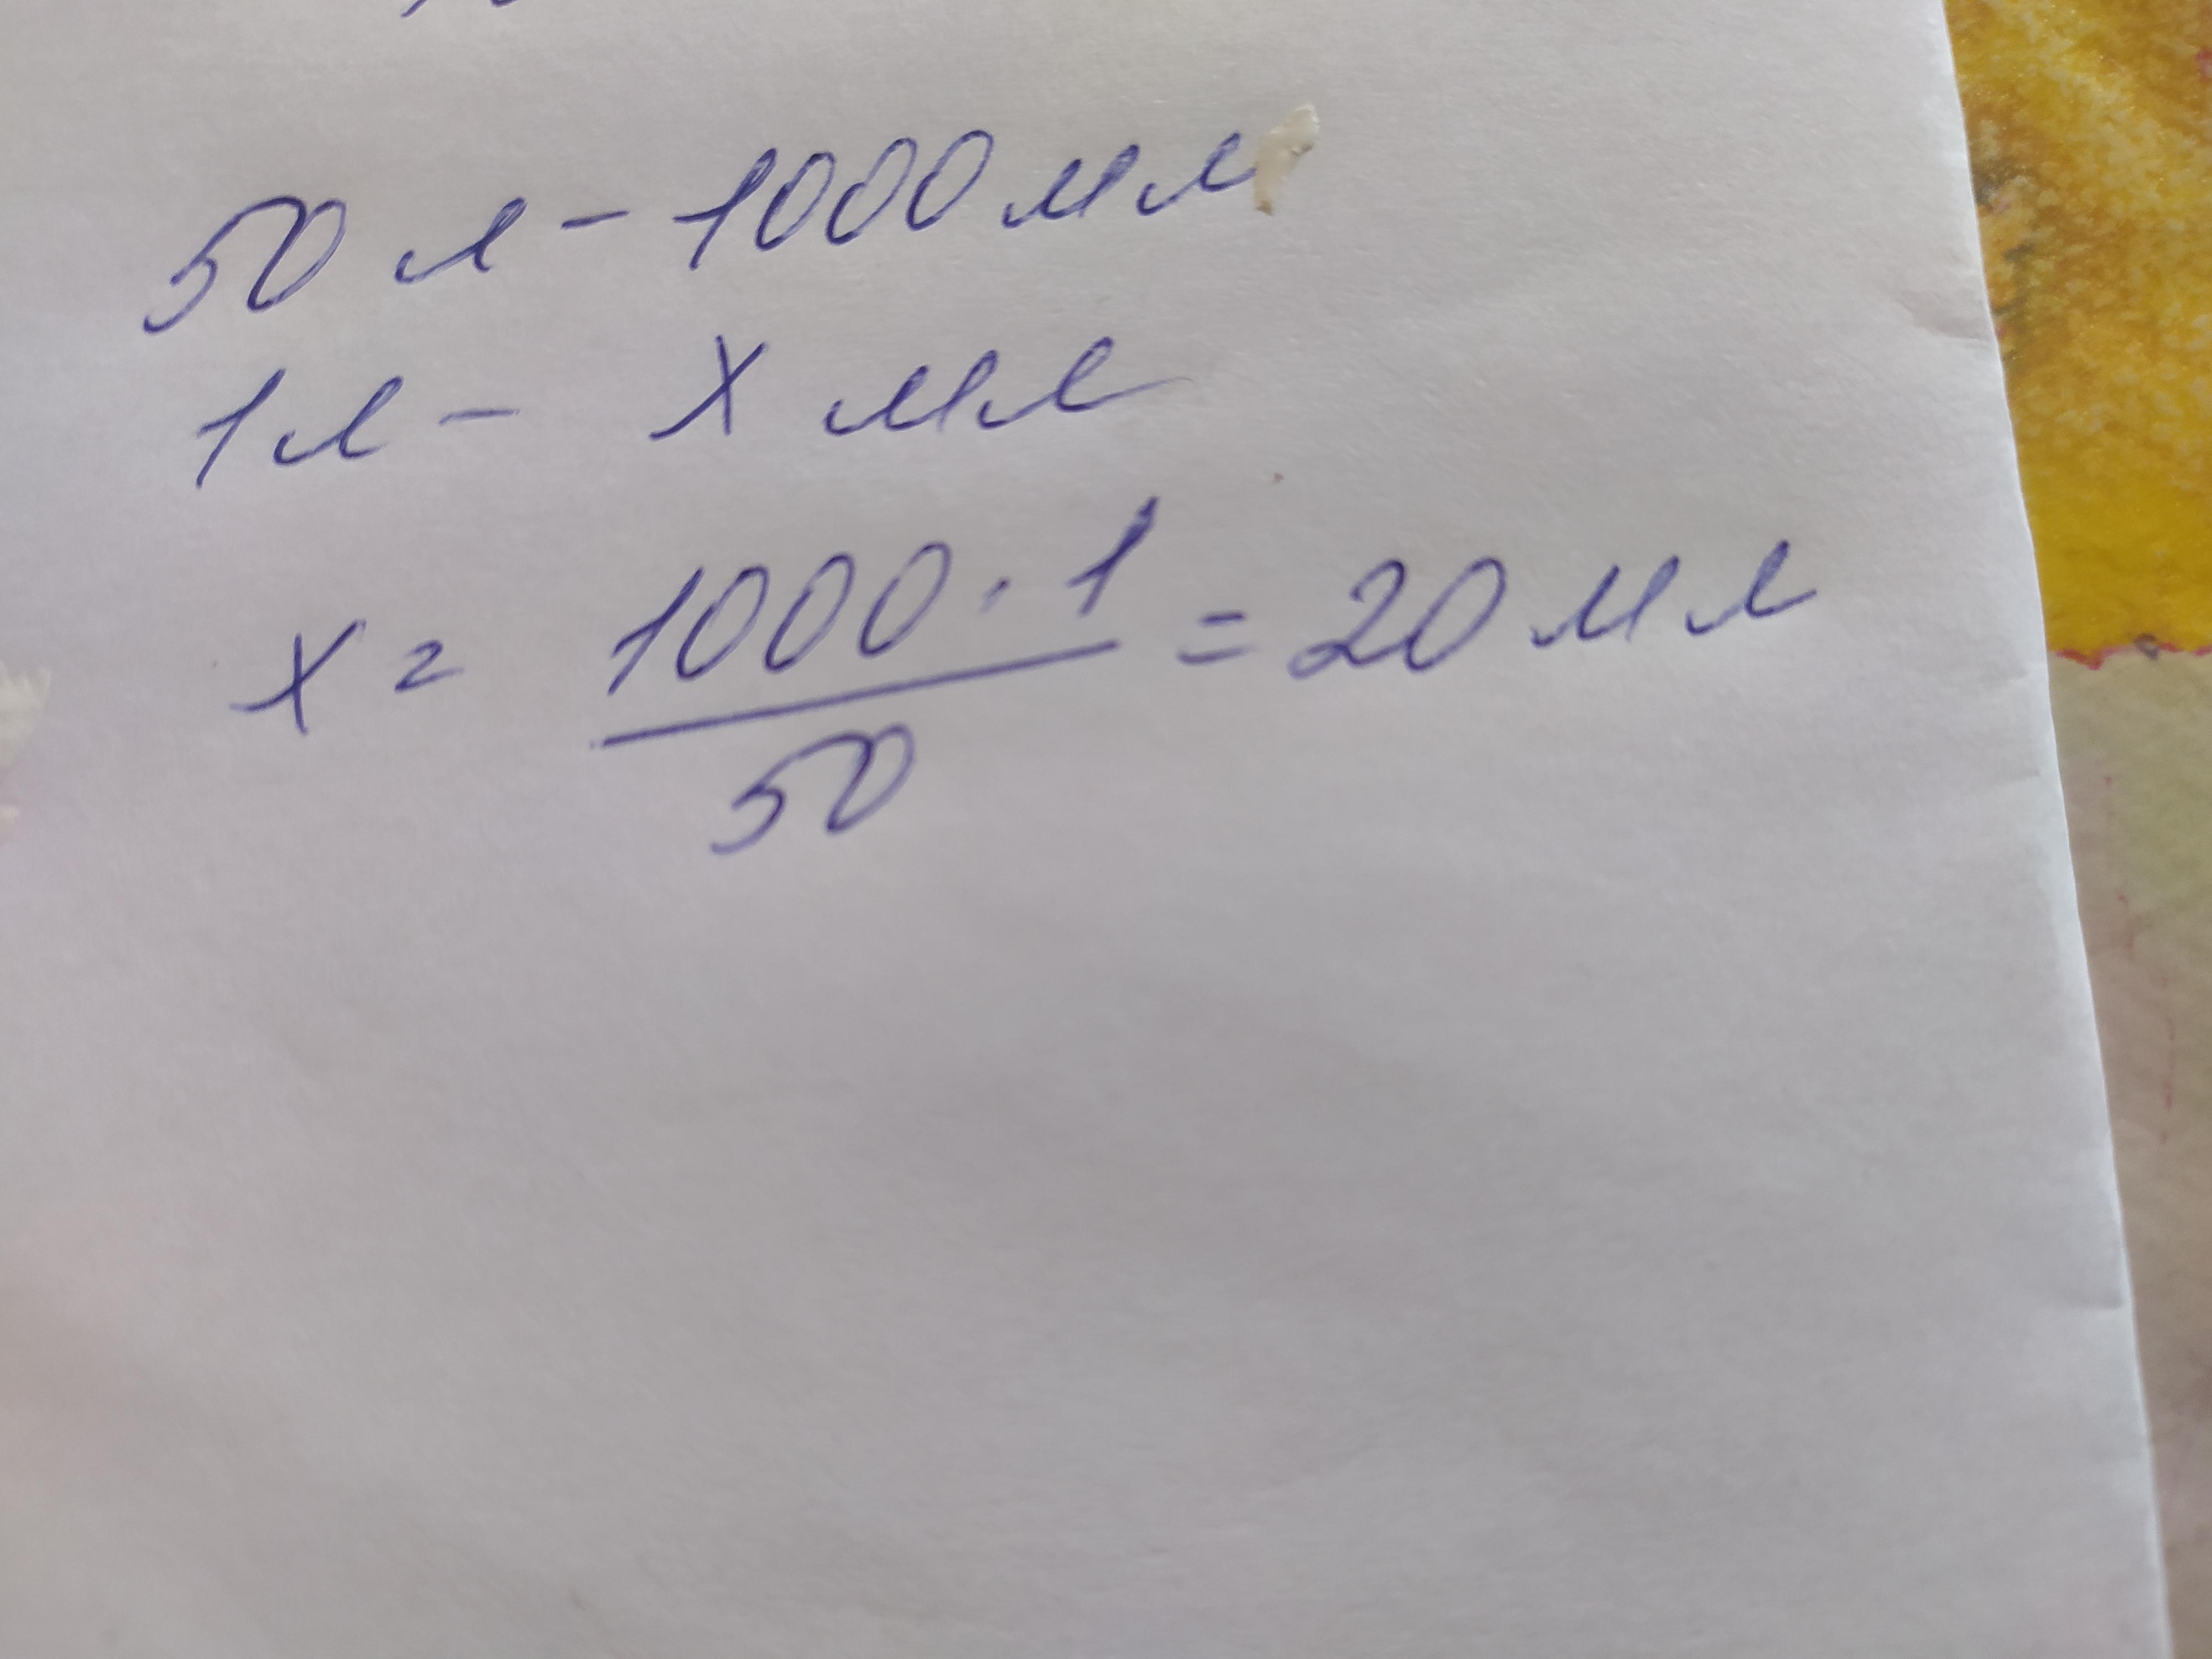 50 л - 1000 мл
1 л - х мл
х = 1000 · 1 / 50 = 20 мл